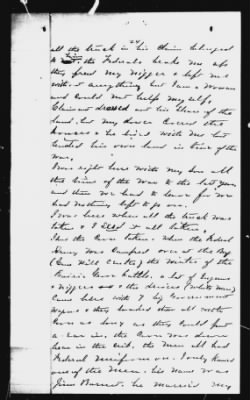 all the truck in his Claim belonged
to him, the Federals broke me up
they freed my Niggers & left me
without anything but I am a Woman
and could not help my self.
Claimant out his share of the
land, but my Niggers the
houses & he lived with me but
tended his own land in time of the
War.
I was right here with my Son all
the time of the War to the last Year
and then we had to leave for we
had nothing left to go on.
I was here when all the truck was
taken & I it all taken.
the Corn taken, when the Federal
Army was Camped over at the
(Cane Hill Centre) the Winter of the
Prairie Grove battle. a lot of
& Niggers & the drivers (white men)
Came here with 7 big Government
Wagons & they loaded them all with
Corn as long as they could put
a ear in. the Corn was
here in the crib. the Men all had
Federal Uniforms on. I only knew
one of the Men. his Name was
Jim he married my